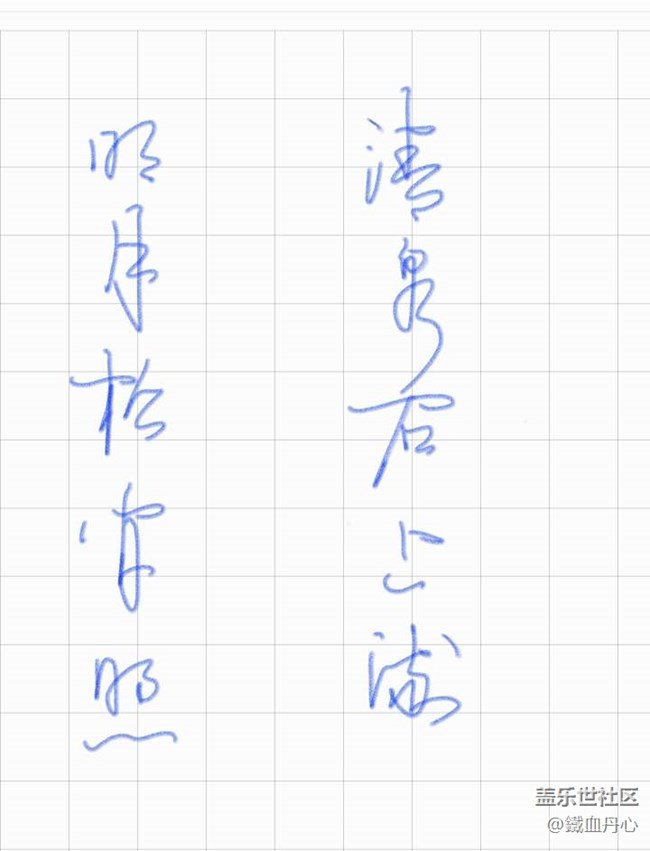 明月松间照
清泉石上流
盖乐世社区
@鐵血丹心